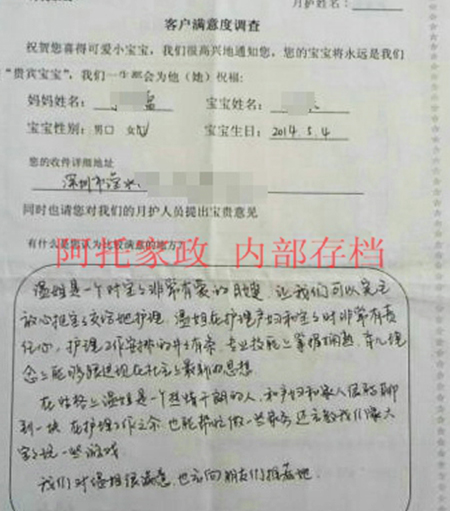 月护姓名：
客户满意度调查
祝贺您喜得可爱小宝宝，我们很高兴地通知您，您的宝宝将永远是我们
“贵宾宝宝”，我们一生都会为他（她）祝福：
妈妈姓名： 宝宝姓名：
宝宝性别：男口 女 宝宝生日：2014.5.4
您的收件详细地址
深圳市
同时也请您对我们的月护人员提出宝贵意见
有什么是您认为比较满意的地方？
阿托家政 内部存档
温姐是一个对宝宝非常有爱的月嫂，让我们可以完完
放心把宝宝交给她护理，温姐在护理产妇和宝宝时非常有责
任心，护理工作安排的井井有条，专业技能上掌握娴熟，育儿理
念上能够跟进现在社会上最新的思想
在性格上温姐是一个热情干朗的人，和产妇和家人很能聊
到一块，在护理工作之余，也能帮忙做一些家务，还会教我们像大
家玩一些游戏
我们对温姐很满意，也会向朋友们推荐她．